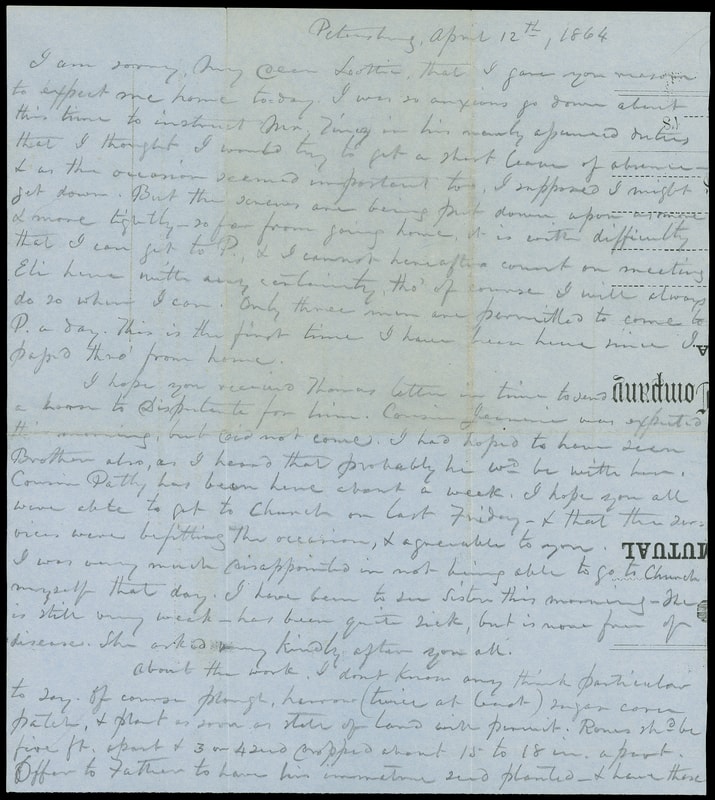 Petersburg, April 12th, 1864
I am sorry, my dear Lottie, that I gave you reason
to expect me home today. I was so anxious go down about
this time to instruct Mr. in his newly assumed duties
that I thought I would try to get a short leave of absence—
& as the occasion seemed important too, I supposed I might
get down. But the screws are being put down upon us more
& more tightly—so far from going home, it is with difficulty
that I can get to P, & I cannot hereafter count on meeting
Eli here with any certainty, tho' of course I will always
do so when I can. Only three men are permitted to come to
P. a day. This is the first time I have been here since I
pass'd thro' from home.
I hope you received Thomas letter in time to send
a horse to Disputanta for him. Cousin was expected
this morning, but did not come. I had hoped to have seen
Brother also, as I heard that probably he wd. be with her.
Cousin Patty has been here about a week. I hope you all
were able to get to Church on last Friday—& that the ser-
vices were befitting the occasion, & agreeable to you.
I was very much disappointed in not being able to go to Church
myself that day. I have been to see Sister this morning—She
is still very weak—has been quite sick, but is now free of
disease. She asked very kindly after you all.
About the work. I don't know any think particular
to say. Of course plough, harrow (twice at least) sugar cane
patch, & plant as soon as state of land will permit. Rows shd. be
five ft. apart & 3 or 4 seed dropped about 15 to 18 in. apart.
Offer to Father to have his seed planted—& have these
18
A
Company
MUTUAL